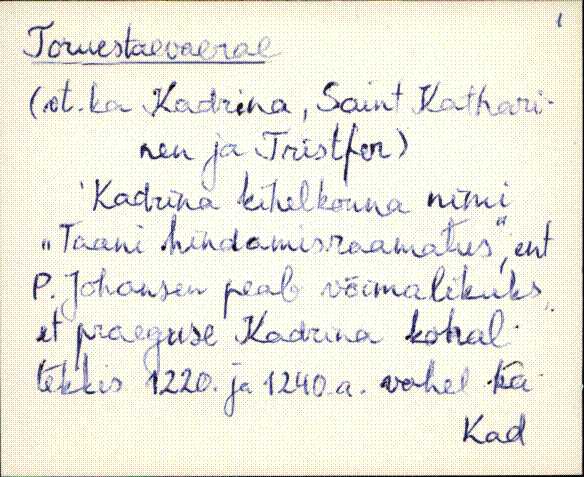 1
Toruestaevaerae
(vt. ka Kadrina, Saint Kathari-
nen ja Tristfer)
'Kadrina kihelkonna nimi
„Taani hindamisraamatus", ent
P. Johansen peab võimalikuks,
et praeguse Kadrina kohal
tekkis 1220. ja 1240. a. vahel ka
Kad